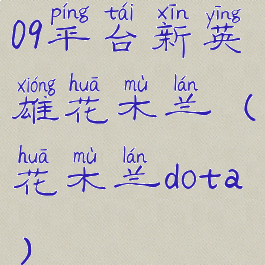 píng tái xīn yīng
09平台新英
xióng huā mù lán
雄花木兰(
huā mù lán
花木兰dota
)